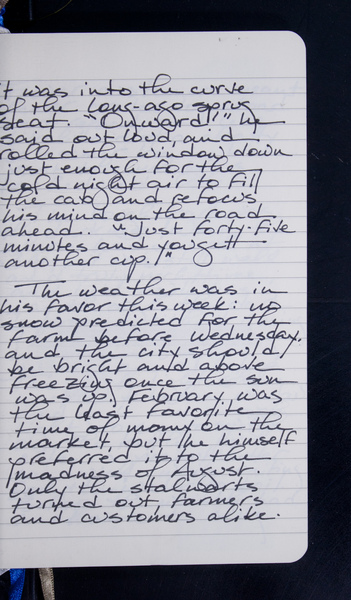 it was into the curve
of the long-ago sprug
seat. "Onward!" he
said out loud, and
rolled the window down
just enough for the
cold night air to fill
the cab and refocus
his mind on the road
ahead. "Just forty-five
minutes and you get
another cup!"
The weather was in
his favor this week: no
snow predicted for the
farm before Wednesday,
and the city should
be bright and above
freezing once the sun
was up. February was
the least favorite
time of many on the
market, but he himself
preferred it to the
madness of August.
Only the stalwarts
turned out, farmers
and customers alike.